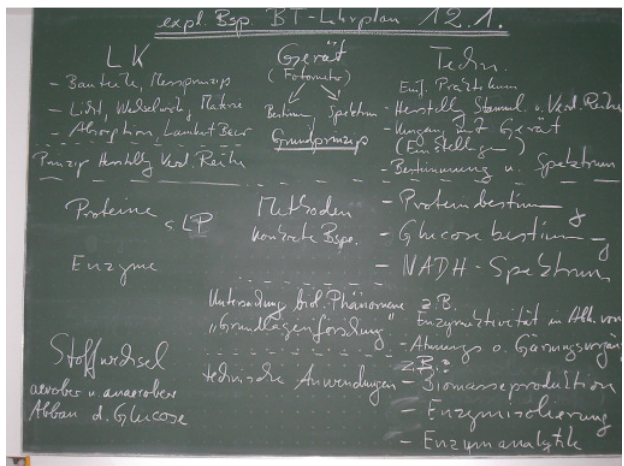 expl. Bsp. BT-Lehrplan 12.1.
LK
- Bauteile, Messprinzip
- Licht, Wechselwirk. Materie
- Absorption, Lambert Beer
Prinzip Herstellg Verd. Reihe
Proteine
Enzyme
Stoffwechsel
aerober u. anaerober
Abbau d. Glucose
Gerät
(Fotometer)
Bestimm. Spektrum
Grundprinzip
Methoden
konkrete Bspe.
Untersuchung biol. Phänomene
"Grundlagenforschung"
technische Anwendungen
Techn.
Einf. Praktikum
- Herstellg Stamml. u. Verd. Reihe
- Umgang mit Gerät
(Einstellgen)
- Bestimmung u. Spektrum
- Proteinbestimmg
- Glucosebestimmg
- NADH-Spektrum
z.B.
Enzymaktivität in Abh. von
- Atmungs o. Gärungsvorgäng
z.B.:
- Biomasseproduktion
- Enzymisolierung
- Enzymanalytik